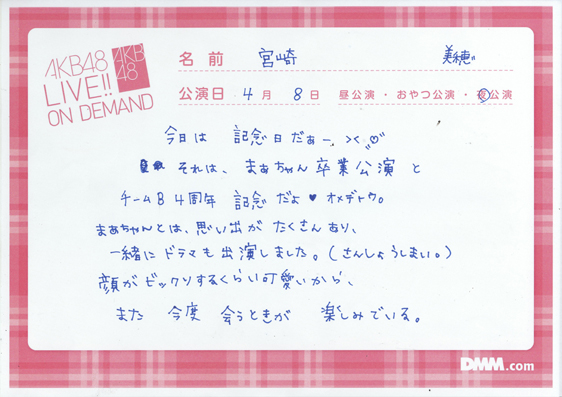 AKB48
LIVE!!
ON DEMAND
AKB
48
名前 宮崎 美穂
公演日 4月 8日 昼公演・おやつ公演・夜公演
今日は 記念日だぁー ><♡
それは、まぁちゃん卒業公演と
チーム8 4周年 記念だよ♥オメデトウ。
まぁちゃんとは、思い出がたくさんあり、
一緒にドラマも出演しました。(さんしょうしまい。)
顔がビックリするくらい可愛いから、
また 今度 会うときが 楽しみでいる。
DMM.com